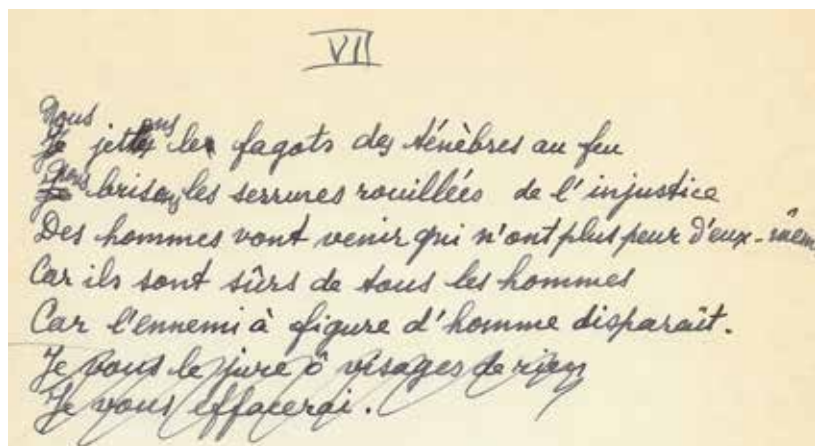 VII
Nous jetons les fagots des ténèbres au feu
Nous brisons les serrures rouillées de l'injustice
Des hommes vont venir qui n'ont plus peur d'eux-mêm
Car ils sont sûrs de tous les hommes
Car l'ennemi à figure d'homme disparaît.
Je vous le jure ô visages de rien
Je vous effacerai.